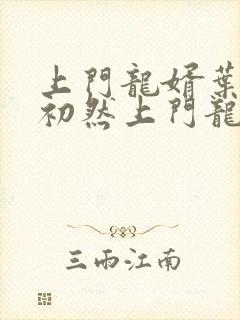 上門龍婿葉
初然上門龍
三雨江南